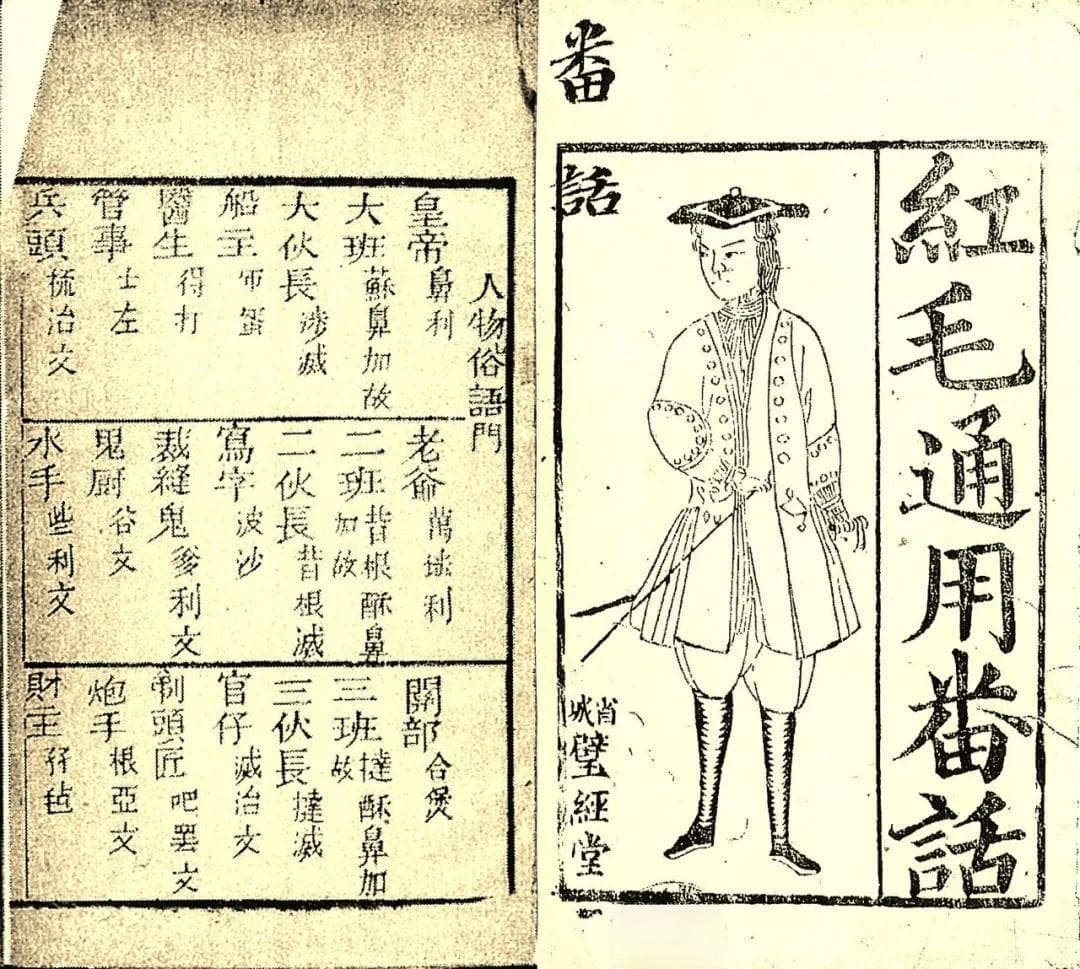 番話
紅毛通用番話
省城璧經堂
人物俗語門
皇帝 鼻利
大班 蘇鼻加故
大伙長 涉滅
船主
醫生 得打
管事 士左
兵頭 梳治文
老爺 萬 利
二班 昔根酥鼻加故
二伙長 昔根滅
寫字 波沙
裁縫鬼 爹利文
鬼廚 谷文
水手 些利文
關部 合煲
三班 撻酥鼻加故
三伙長 撻滅
官仔 滅治文
剃頭匠 吧罷文
炮手 根亞文
財主 孖毡